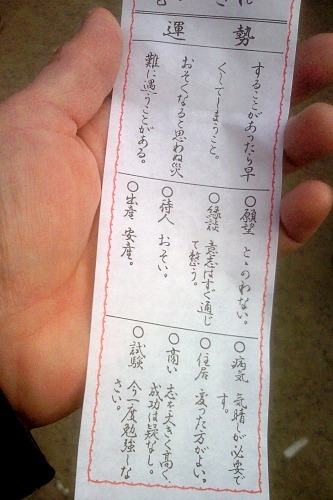 運勢
することがあったら早
くしてしまうこと。
おそくなると思わぬ災
難に遇うことがある。
○願望 とゝのわない。
○縁談 意志はすぐ通じ
て整う。
○待人 おそい。
○出産 安産。
○病気 気晴が必要で
す。
○住居 変った方がよい。
○商い 志を大きく高く。
成功は疑なし。
○試験 今一度勉強しな
さい。